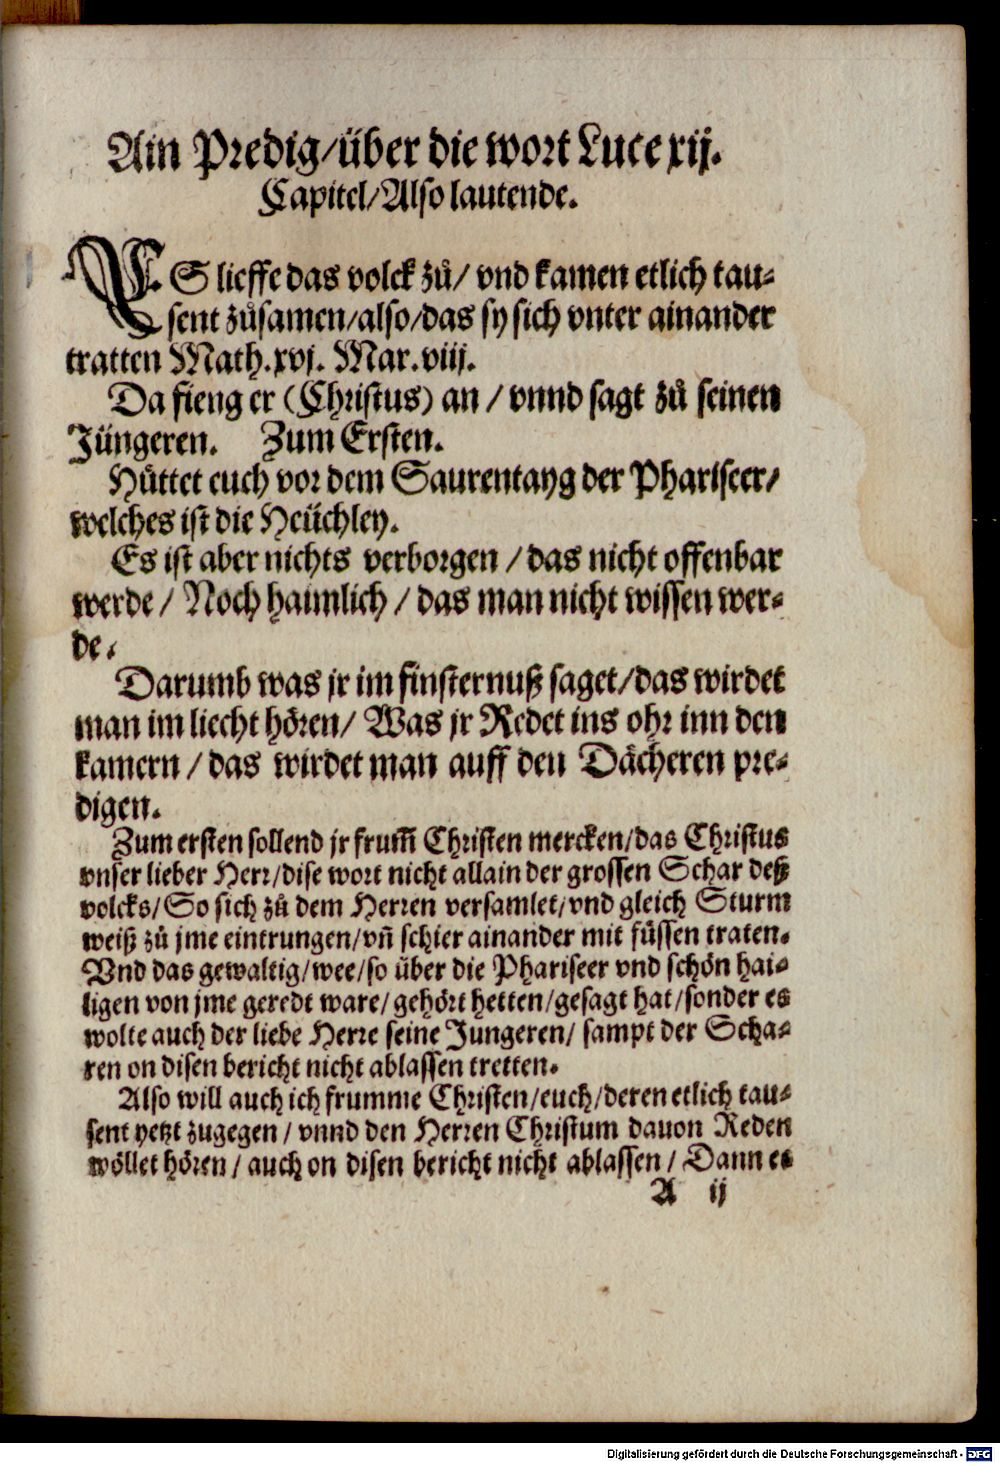 Ain Predig/über die wort Luce xij.
Capitel/Also lautende.
ES lieffe das volck zů/ vnd kamen etlich tau-
sent zůsamen/also/das sy sich vnter ainander
tratten Math.xvj. Mar.viij.
Da fieng er (Christus) an / vnnd sagt zů seinen
Jüngeren. Zum Ersten.
Hüttet euch vor dem Saurentayg der Phariseer/
welches ist die Heüchley.
Es ist aber nichts verborgen / das nicht offenbar
werde / Noch haimlich / das man nicht wissen wer-
de.
Darumb was jr im finsternuß saget/das wirdet
man im liecht hören/ Was jr Redet ins ohr inn den
kamern / das wirdet man auff den Dächeren pre-
digen.
Zum ersten sollend jr frum̃ Christen mercken/das Christus
vnser lieber Herr/dise wort nicht allain der grossen Schar deß
volcks/So sich zů dem Herren versamlet/vnd gleich Sturm
weiß zů jme eintrungen/vñ schier ainander mit füssen traten.
Vnd das gewaltig/wee/so über die Phariseer vnd schön hai-
ligen von jme geredt ware/gehört hetten/gesagt hat/sonder es
wolte auch der liebe Herre seine Jungeren/ sampt der Scha-
ren on disen bericht nicht ablassen tretten.
Also will auch ich frumme Christen/euch/deren etlich tau-
sent yetzt zugegen / vnnd den Herren Christum dauon Reden
wöllet hören / auch on disen bericht nicht ablassen / Dann es
A ij
Digitalisierung gefördert durch die Deutsche Forschungsgemeinschaft - DFG